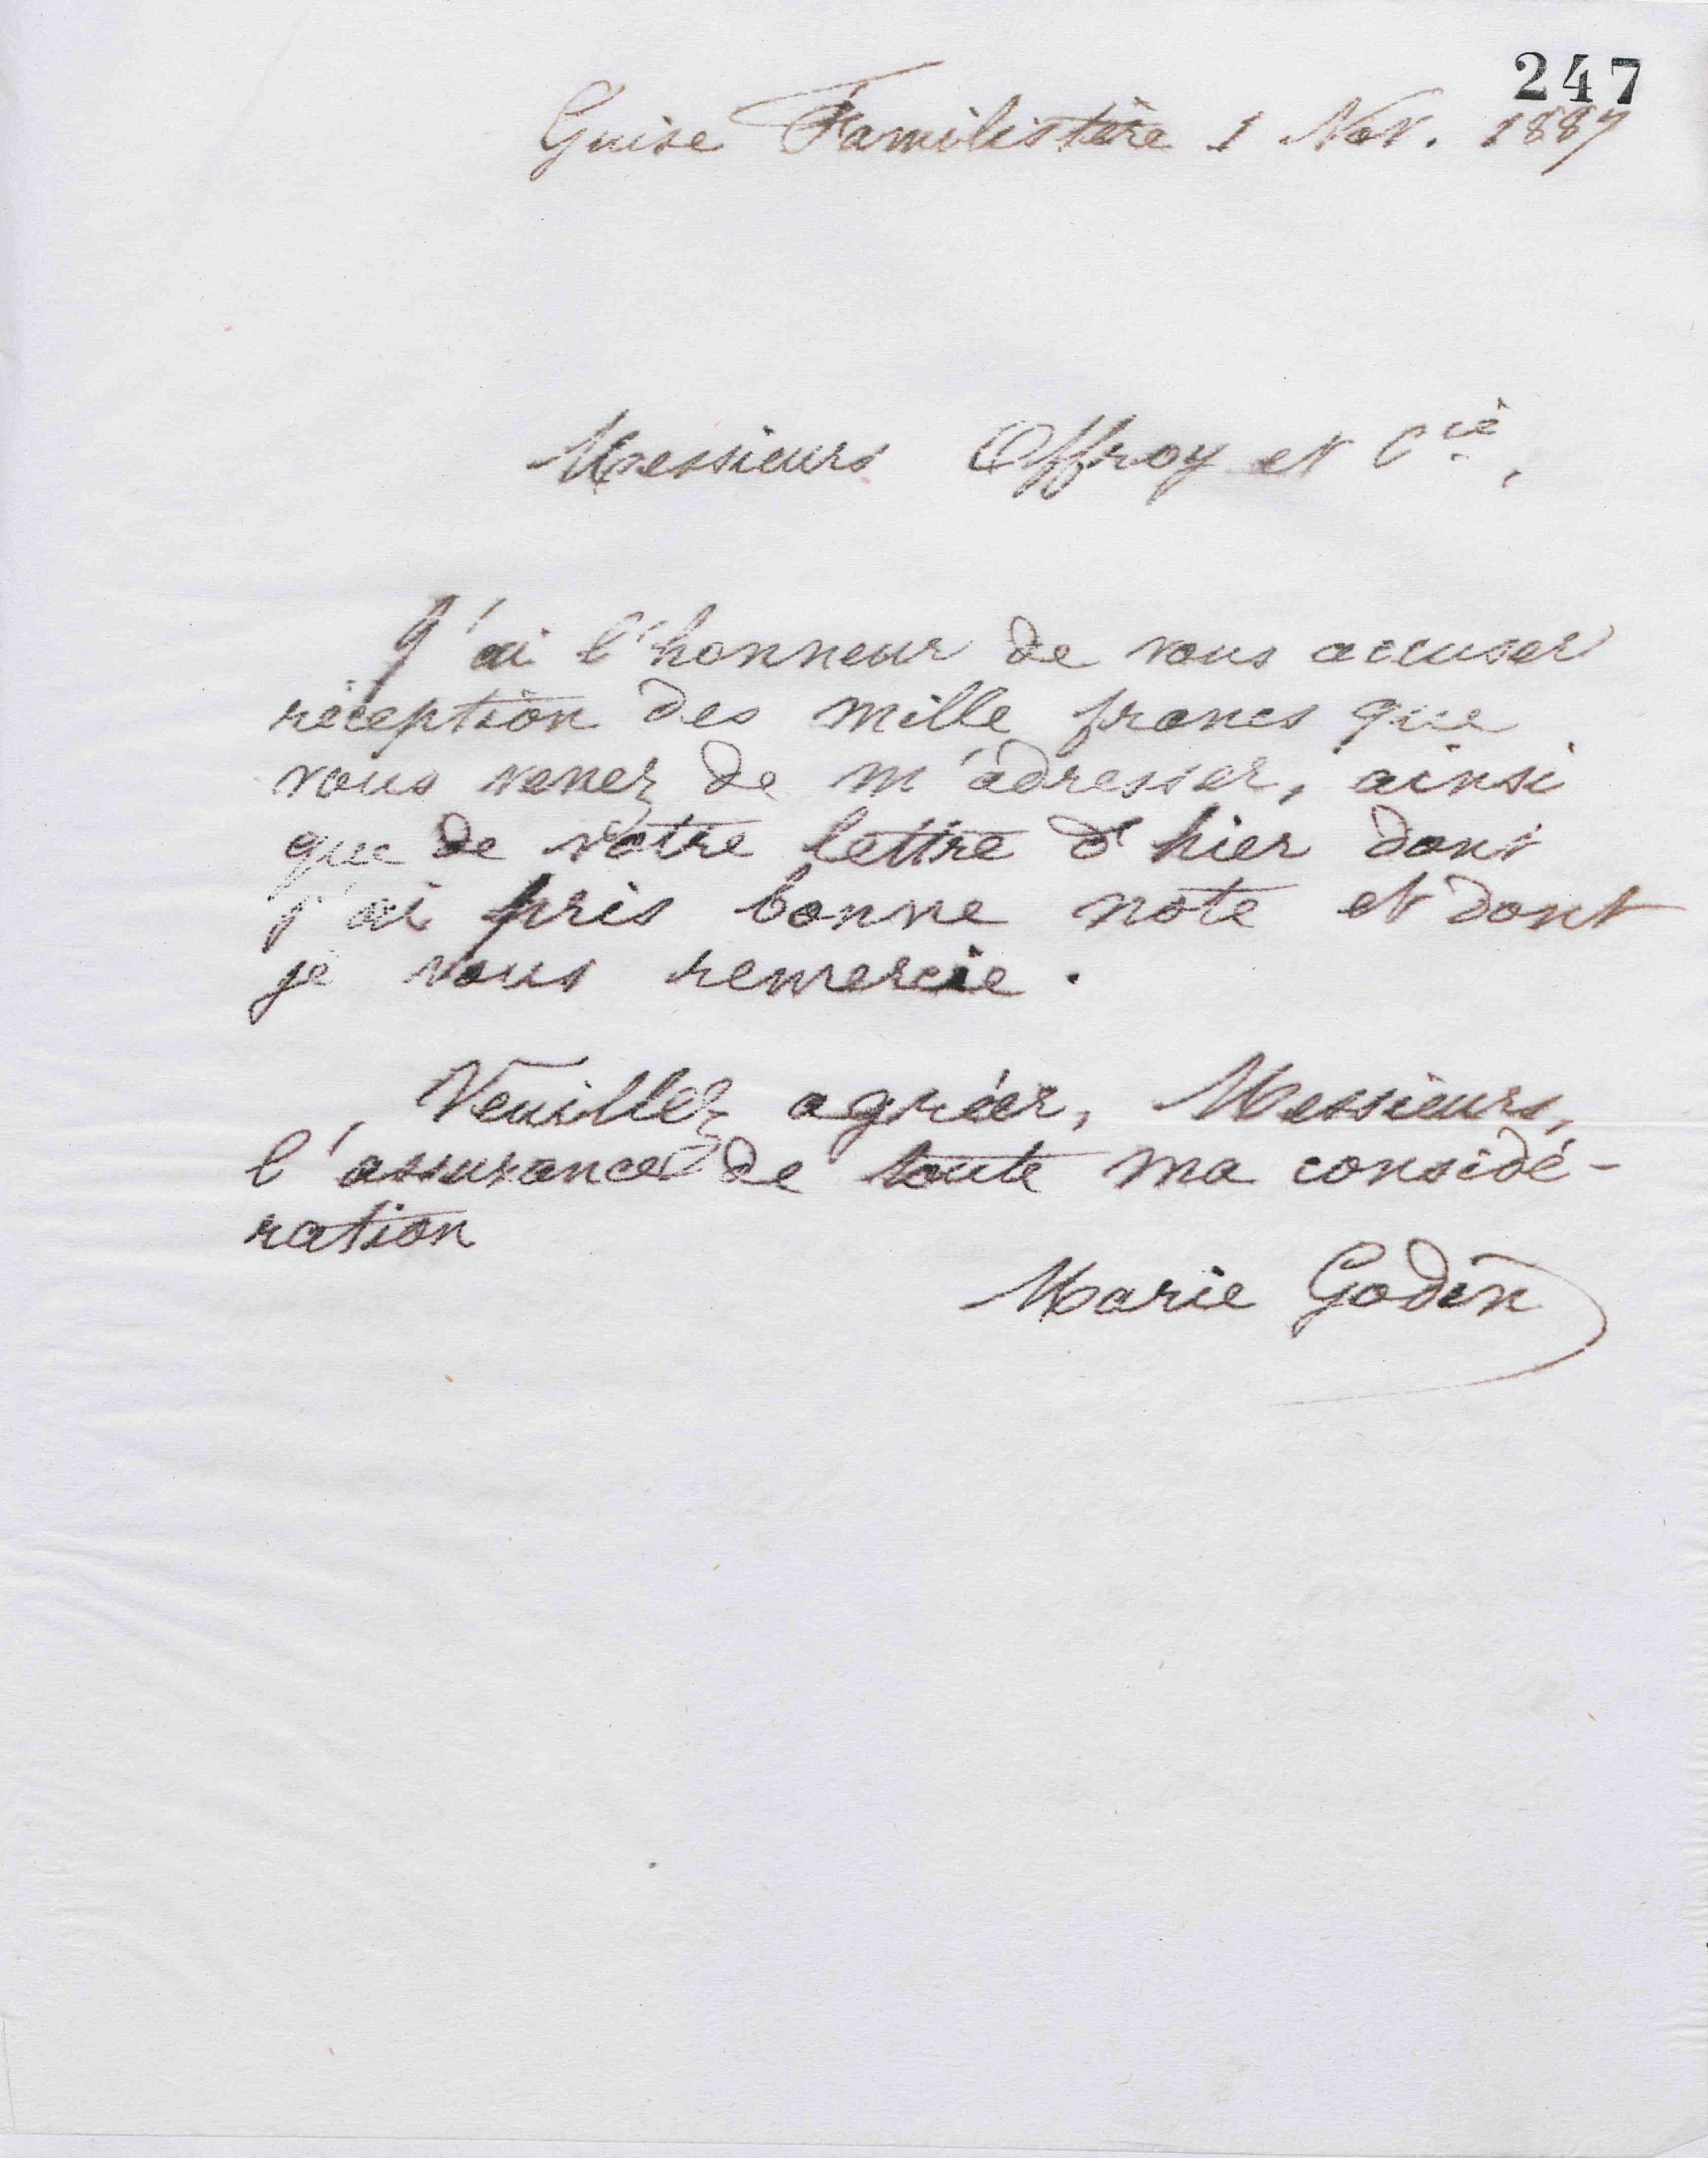 247
Guise Familistère 1 Nov. 1887
Messieurs Offroy et Cie,
J'ai l'honneur de vous accuser
réception des mille francs que
vous venez de m'adresser, ainsi
que de votre lettre d'hier dont
j'ai pris bonne note et dont
je vous remercie.
Veuillez agréer, Messieurs,
l'assurance de toute ma considé-
ration
Marie Godin